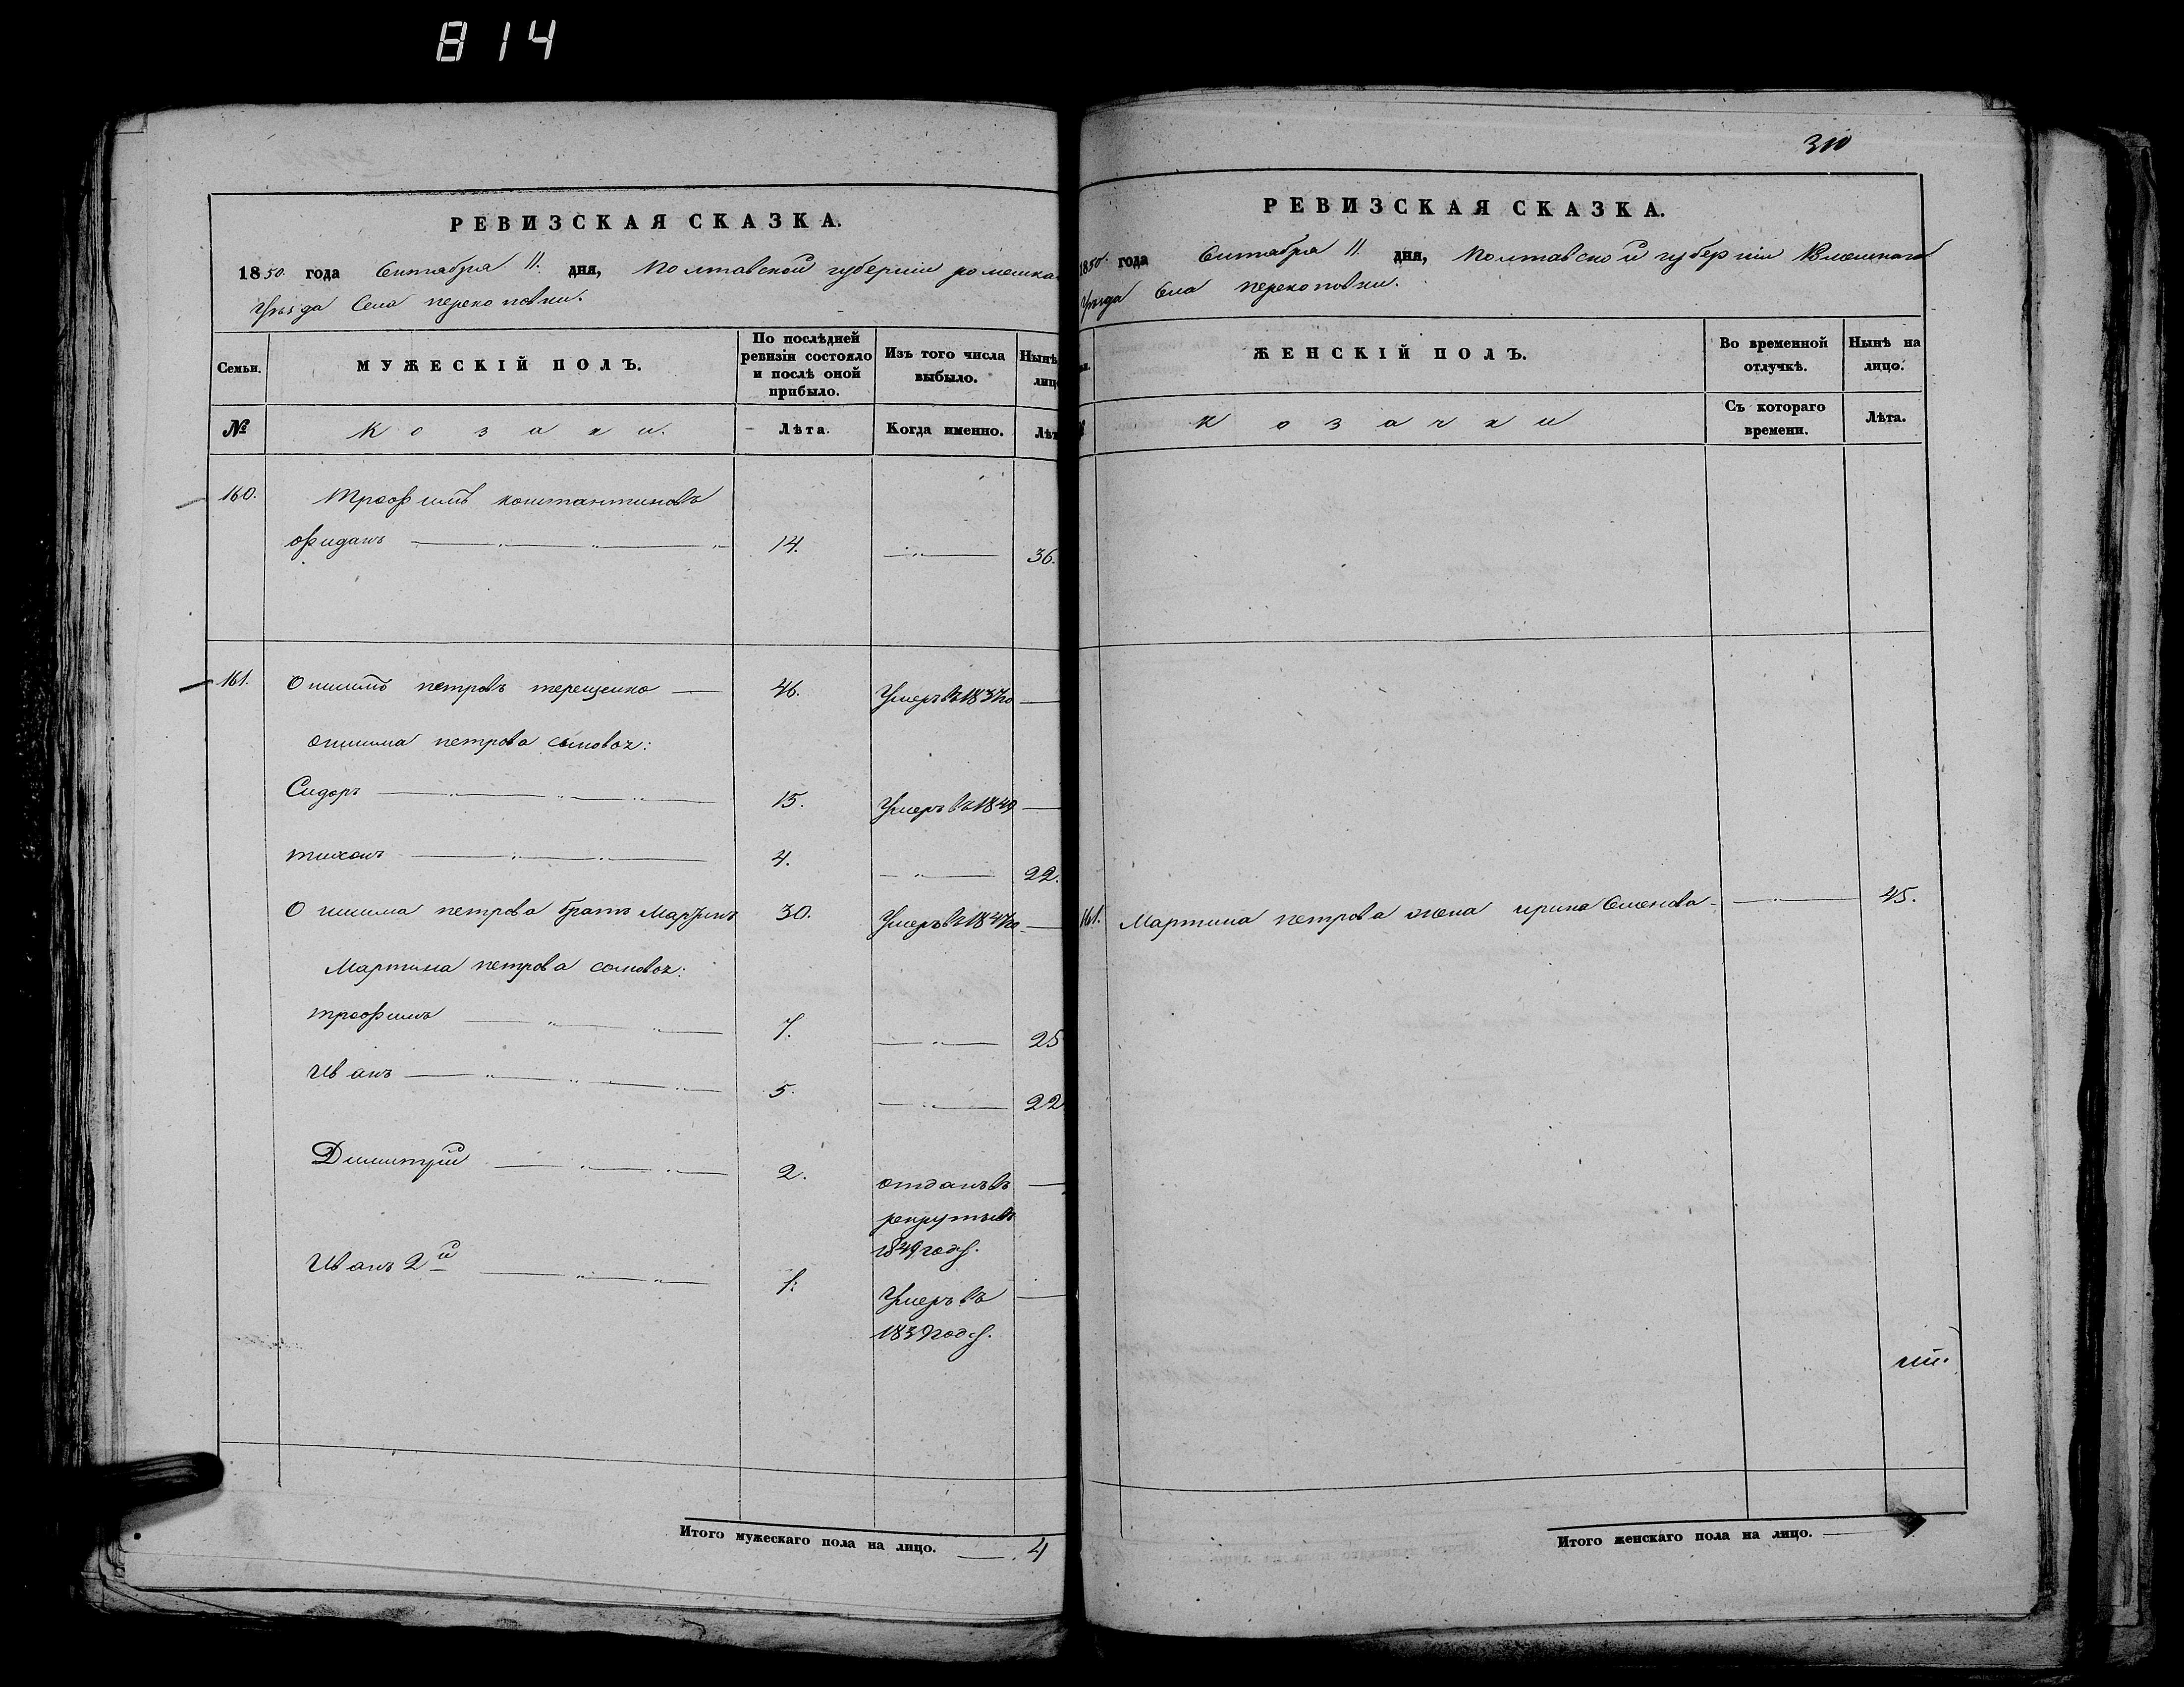 814
РЕВИЗСКАЯ СКАЗКА.
1850. года Сентября 11. дня, Полтавской губерніи роменска
Уѣзда Села перекоповки.
Семьи.
МУЖЕСКІЙ ПОЛЪ.
По послѣдней ревизіи состояло и послѣ оной прибыло.
Изъ того числа выбыло.
Нынѣ лицо
№
Козаки.
Лѣта.
Когда именно.
Лѣт
160. Трофимъ константиновъ
14. 36.
161. Онисимъ петровъ терещенко 46. Умеръ въ 1837 го
онисима петрова сыновья:
Сидоръ 15. Умеръ въ 1849
тихонъ 4. 22.
Онисима петрова братъ Мартинъ 30. Умеръ въ 1847 го
Мартина петрова сыновья:
трофимъ 7. 25
Иванъ 5. 22
Димитрій 2. отданъ въ
рекруты въ
1849 году.
Иванъ 2й 1. Умеръ въ
1839 году.
Итого мужескаго пола на лицо. 4
310
РЕВИЗСКАЯ СКАЗКА.
1850. года Сентября 11. дня, Полтавской губерніи Роменскаго
Уѣзда Села перекоповки.
ЖЕНСКІЙ ПОЛЪ.
Во временной отлучкѣ.
Нынѣ на лицо.
Козачки
Съ котораго времени.
Лѣта.
161. Мартина петрова жена ирина Семенова 45.
Итого женскаго пола на лицо.